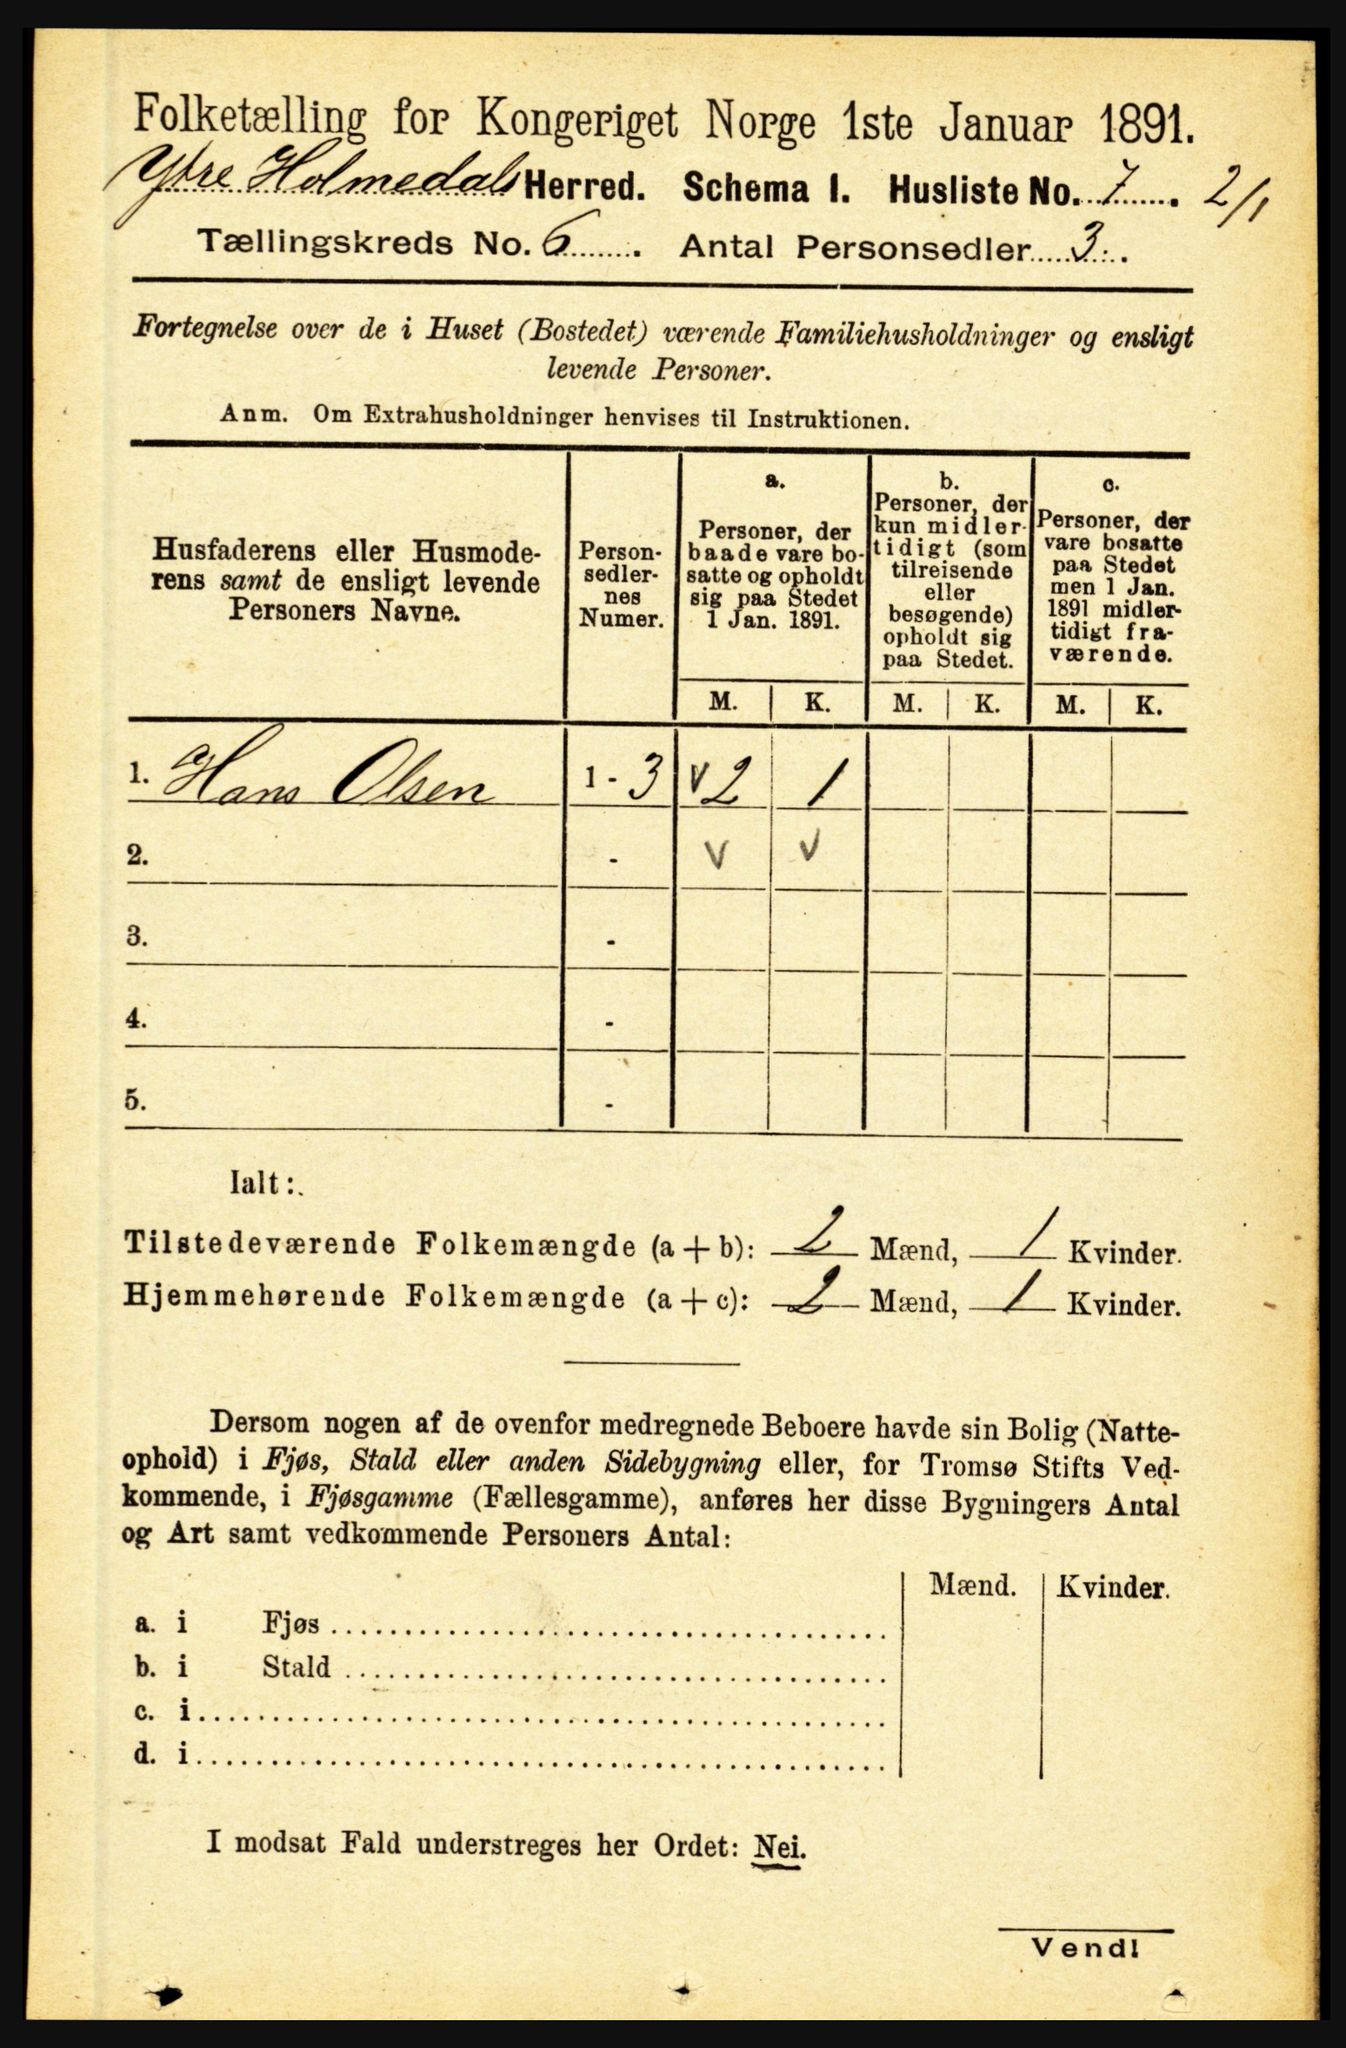 Folketælling for Kongeriget Norge 1ste Januar 1891.
Ytre Holmedals Herred. Schema I. Husliste No. 7. 2/1
Tællingskreds No. 6. Antal Personsedler 3.
Fortegnelse over de i Huset (Bostedet) værende Familiehusholdninger og ensligt
levende Personer.
Anm. Om Extrahusholdninger henvises til Instruktionen.
Husfaderens eller Husmode-
rens samt de ensligt levende
Personers Navne.
Person-
sedler-
nes
Numer.
a.
Personer, der
baade vare bo-
satte og opholdt
sig paa Stedet
1 Jan. 1891.
b.
Personer, der
kun midler-
tidigt (som
tilreisende
eller
besøgende)
opholdt sig
paa Stedet.
c.
Personer, der
vare bosatte
paa Stedet
men 1 Jan.
1891 midler-
tidigt fra-
værende.
M. K. M. K. M. K.
1. Hans Olsen 1 - 3 v 2 1
2. - v v
3. -
4. -
5. -
Ialt:
Tilstedeværende Folkemængde (a + b): 2 Mænd, 1 Kvinder.
Hjemmehørende Folkemængde (a + c): 2 Mænd, 1 Kvinder.
Dersom nogen af de ovenfor medregnede Beboere havde sin Bolig (Natte-
ophold) i Fjøs, Stald eller anden Sidebygning eller, for Tromsø Stifts Ved-
kommende, i Fjøsgamme (Fællesgamme), anføres her disse Bygningers Antal
og Art samt vedkommende Personers Antal:
Mænd. Kvinder.
a. i Fjøs
b. i Stald
c. i
d. i
I modsat Fald understreges her Ordet: Nei.
Vend!